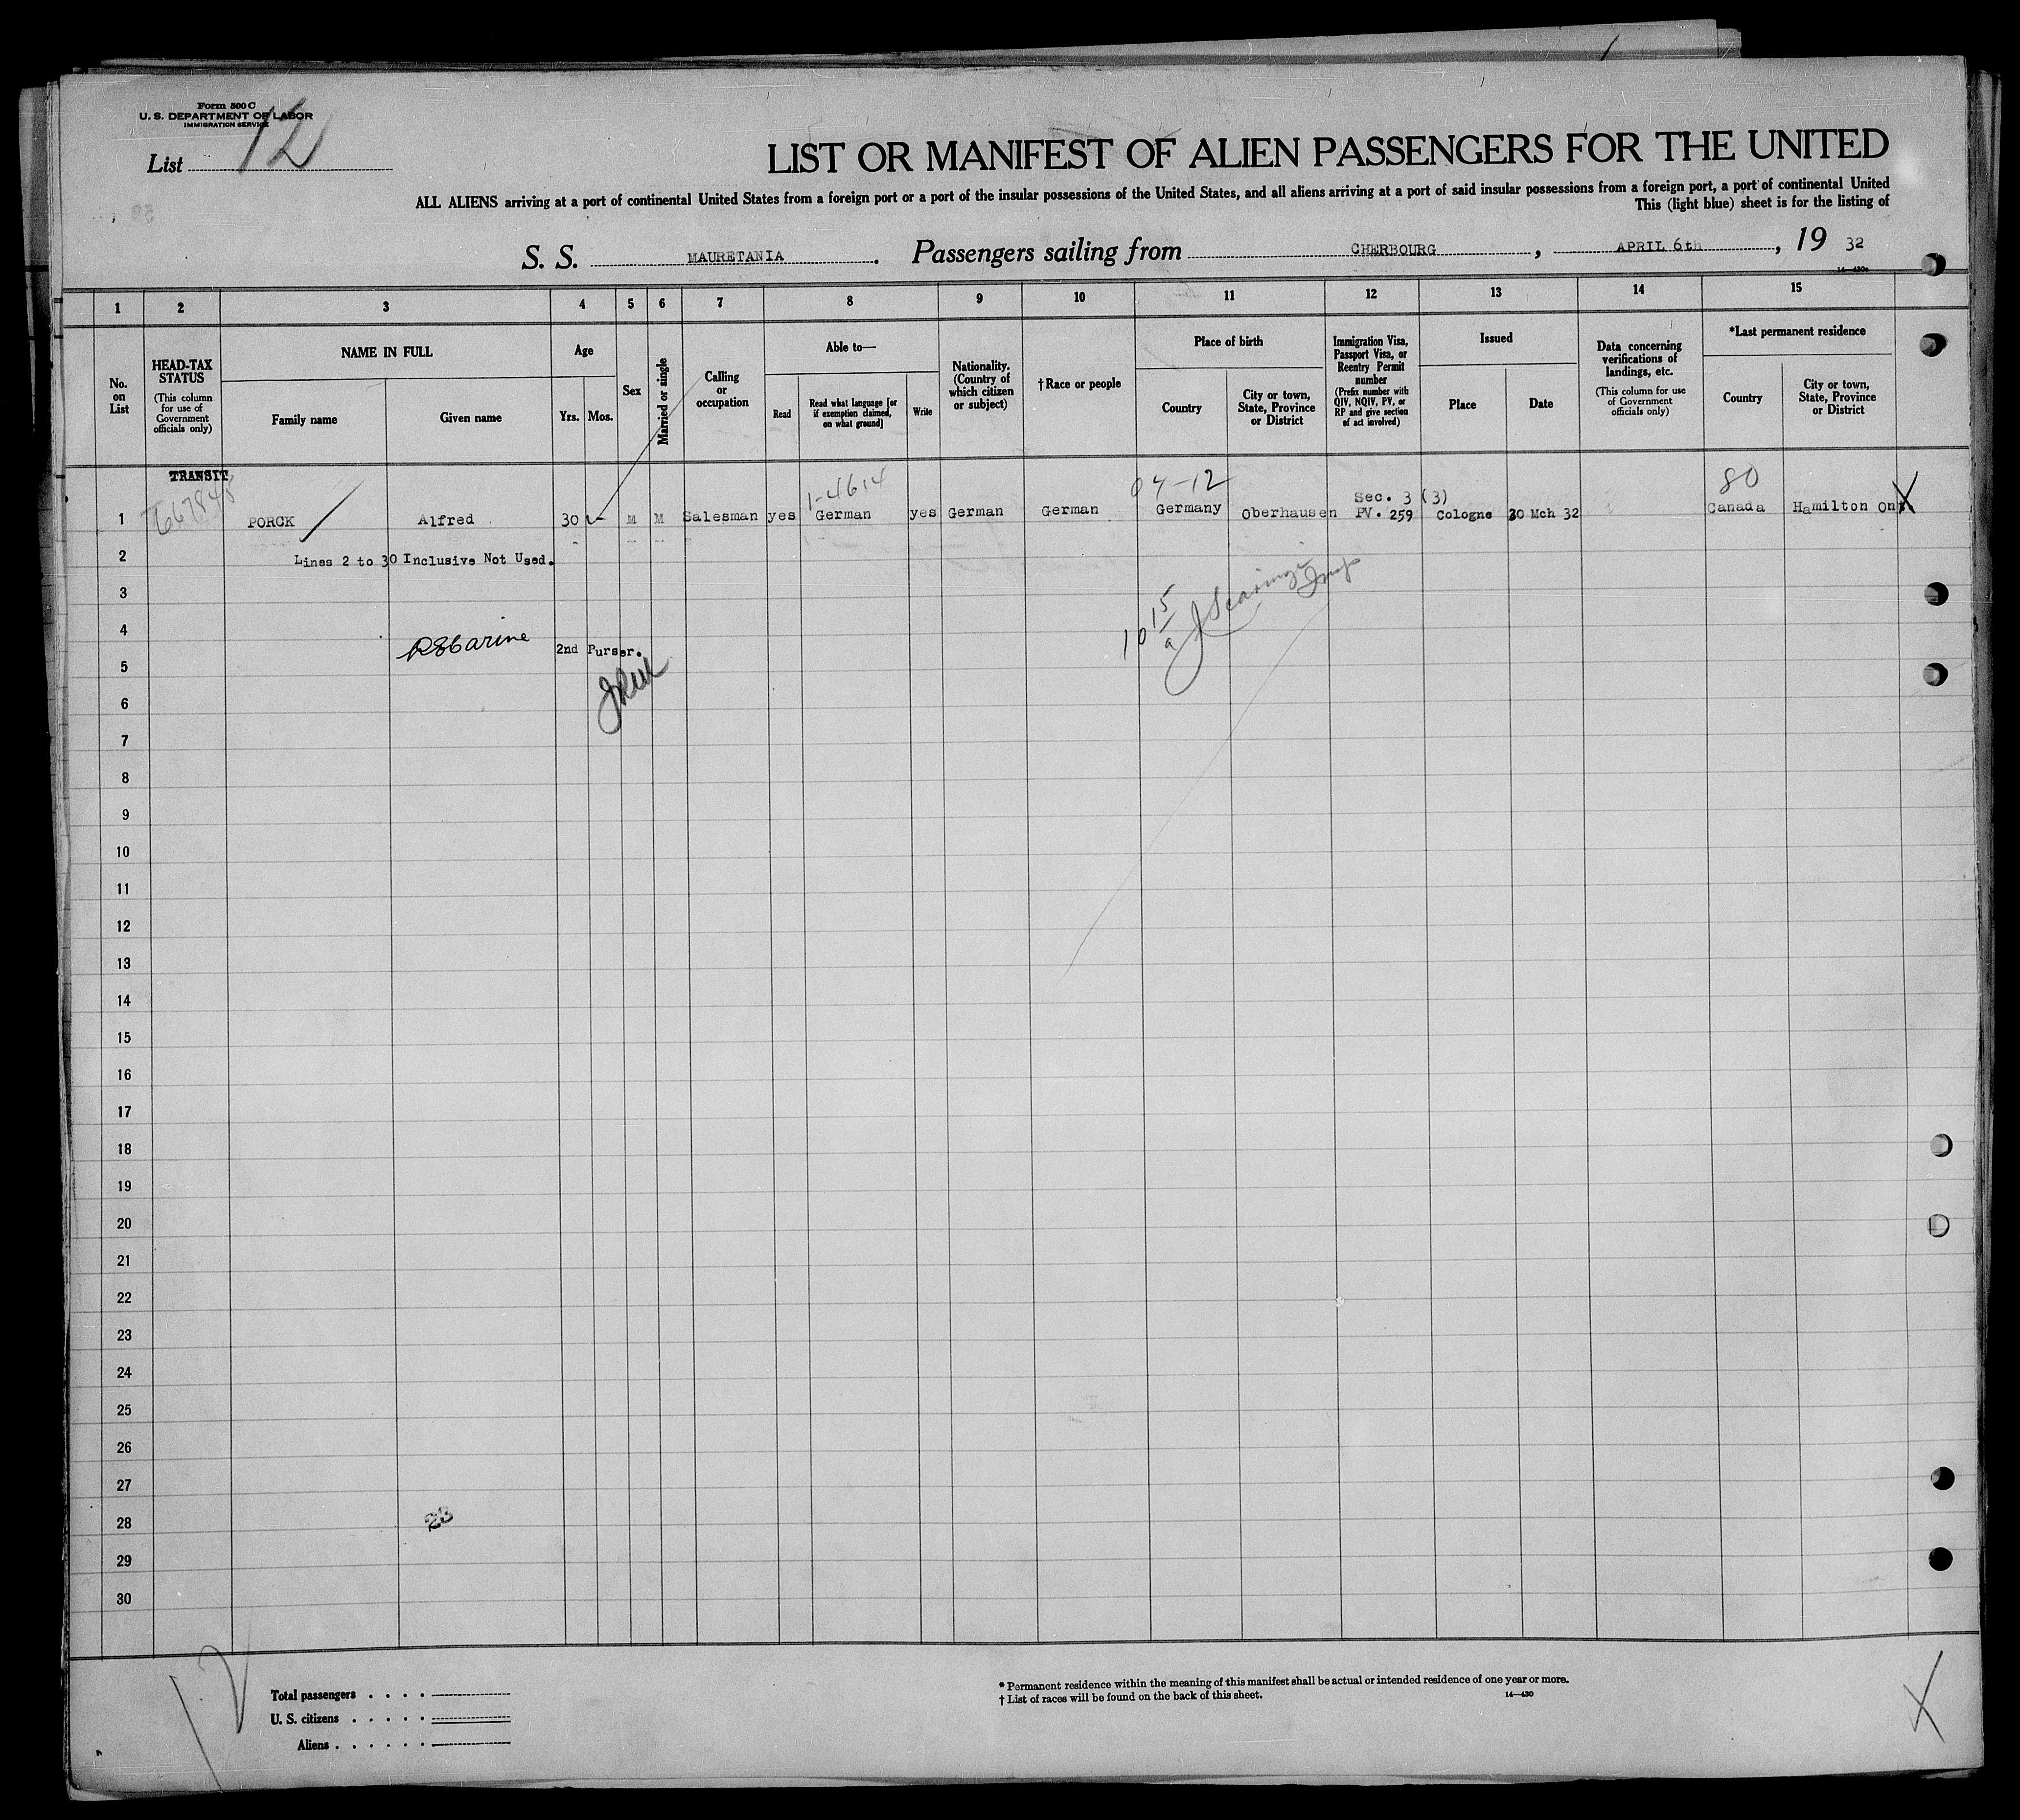 Form 500 C
U. S. DEPARTMENT OF LABOR
IMMIGRATION SERVICE
List 12
LIST OR MANIFEST OF ALIEN PASSENGERS FOR THE UNITED
ALL ALIENS arriving at a port of continental United States from a foreign port or a port of the insular possessions of the United States, and all aliens arriving at a port of said insular possessions from a foreign port, a port of continental United
This (light blue) sheet is for the listing of
S. S. MAURETANIA. Passengers sailing from CHERBOURG, APRIL 6th, 19 32
1 2 3 4 5 6 7 8 9 10 11 12 13 14 15
No. on List
HEAD-TAX STATUS (This column for use of Government officials only)
NAME IN FULL
Family name
Given name
Age
Yrs.
Mos.
Sex
Married or single
Calling or occupation
Able to—
Read
Read what language [or if exemption claimed, on what ground]
Write
Nationality. (Country of which citizen or subject)
†Race or people
Place of birth
Country
City or town, State, Province or District
Immigration Visa, Passport Visa, or Reentry Permit number (Prefix number with QIV, NQIV, PV, or RP and give section of act involved)
Issued
Place
Date
Data concerning verifications of landings, etc. (This column for use of Government officials only)
*Last permanent residence
Country
City or town, State, Province or District
TRANSIT 1-4614 04-12 Sec. 3 (3) 80
1 PORCK Alfred 30 M M Salesman yes German yes German German Germany Oberhausen PV. 259 Cologne 30 Mch 32 Canada Hamilton Ont X
2 Lines 2 to 30 Inclusive Not Used.
3
4
2nd Purser.
5
6
7
8
9
10
11
12
13
14
15
16
17
18
19
20
21
22
23
24
25
26
27
28
29
30
12
Total passengers . . . .
U. S. citizens . . . . .
Aliens . . . . . .
* Permanent residence within the meaning of this manifest shall be actual or intended residence of one year or more.
† List of races will be found on the back of this sheet.
14—430
X